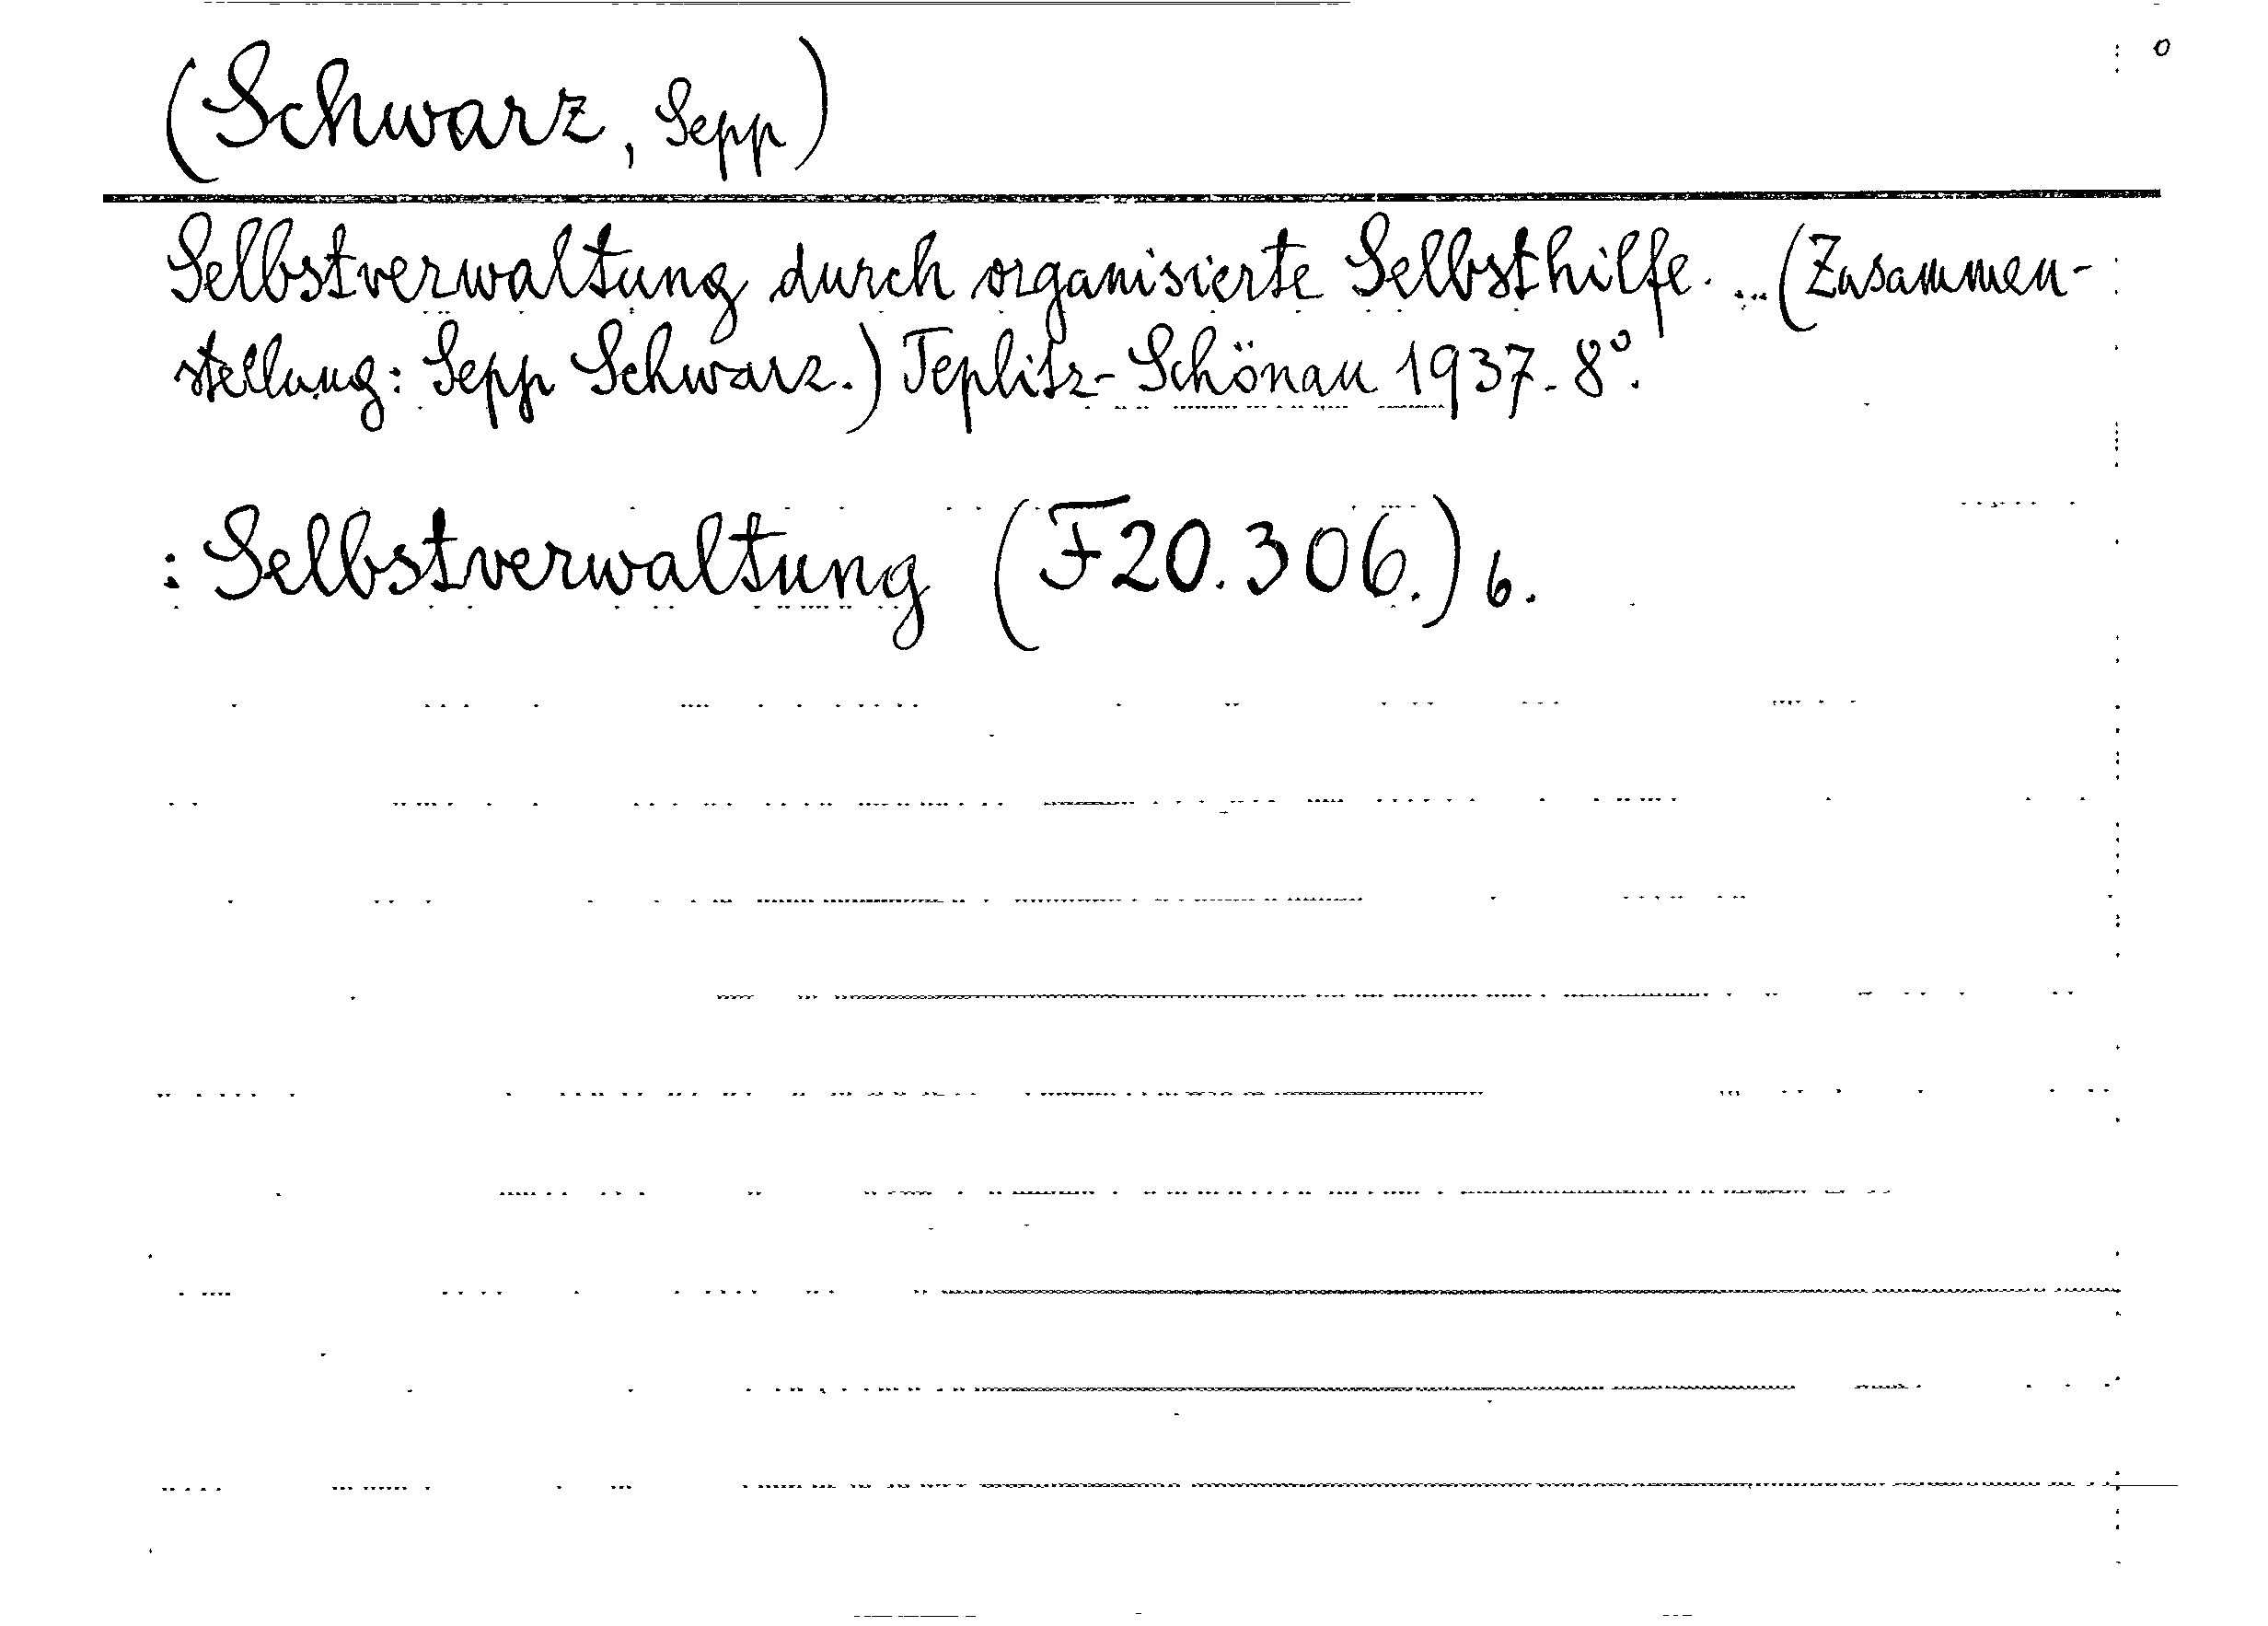 (Schwarz, Sepp)
Selbstverwaltung durch organisierte Selbsthilfe. ... (Zusammen-
stellung: Sepp Schwarz.) Teplitz-Schönau 1937. 8°.
: Selbstverwaltung (F20.306.) b.